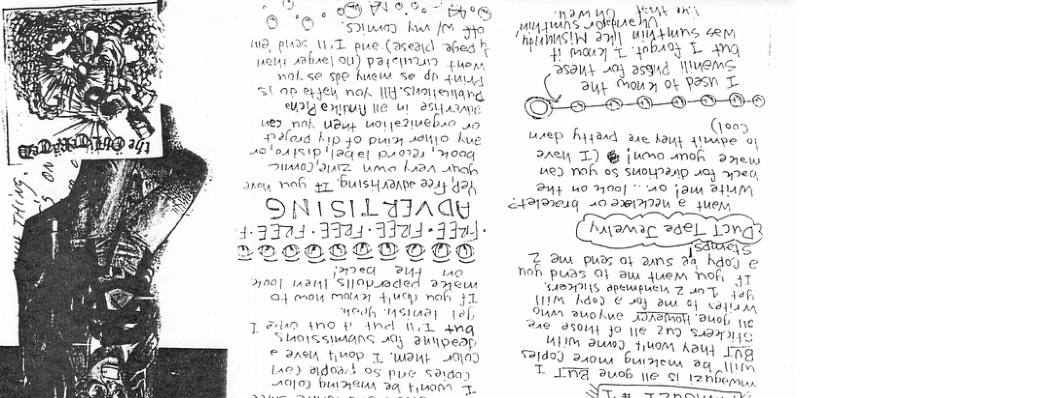 #1
mwaguzi iz all gone BUT I
will be making more copies
BUT they won't come with
stickers cuz all of those are
all gone. However anyone who
writes to me for a copy will
get 1 or 2 handmade stickers.
If you want me to send you
a copy be sure to send me 2
stamps!
Duct Tape Jewelry
Want a necklace or bracelet?
Write me! or... look on the
back for directions so you can
make your own! (I have
to admit they are pretty darn
cool)
I used to know the
Swahili phrase for these
but I forgot. I know it
was sumthin like
sumthin
like that. Oh well.
I won't be making color
copies and so people can
color them. I don't have a
deadline for submissions
but I'll put it out once I
get tenish. Yeah.
If you don't know how to
make paperdolls then look
on the back!
·FREE·FREE·FREE·FREE·F
ADVERTISING
Yep, free advertising. If you have
your very own zine, comic,
book, record label, distro, or
any other kind of diy project
or organization then you can
advertise in all
Publications. All you hafta do is
Print up as many ads as you
want circulated (no larger than
¼ page please) and I'll send 'em
off w/ my comics.
THING.
IS ON
the